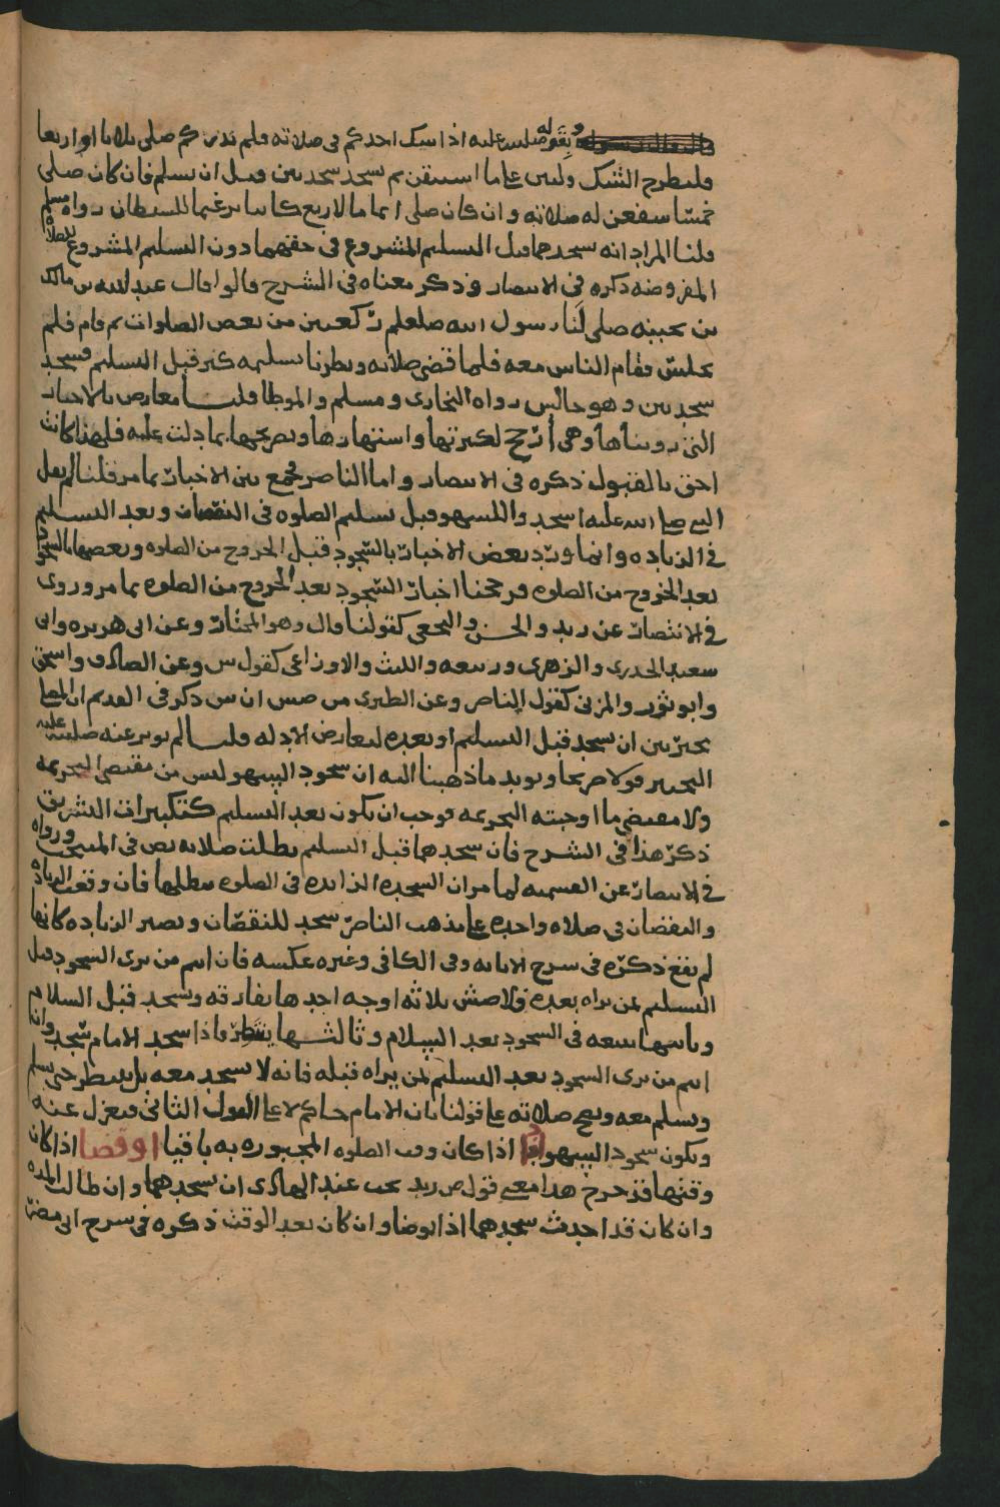 وبقوله صلى الله عليه اذا شك احدكم في صلاته فلم يدر كم صلى ثلاثا او اربعا
فليطرح الشك وليبن على ما استيقن ثم يسجد سجدتين قبل ان يسلم فان كان صلى
خمسا شفعن له صلاته وان كان صلى اتماما لاربع كانتا ترغيما للشيطان رواه مسلم
قلنا المراد انه سجدهما قبل التسليم المشروع في حقهما دون التسليم المشروع للصلاة
المفروضه ذكره في الانتصار وذكر معناه في الشرح قالوا قال عبد الله بن مالك
بن بحينه صلى لنا رسول الله صلعلم ركعتين من بعض الصلوات ثم قام فلم
يجلس فقام الناس معه فلما قضى صلاته ونظرنا تسليمه كبر قبل التسليم فسجد
سجدتين وهو جالس رواه البخاري ومسلم والموطا قلنا معارض بالاخبار
التي رويناها وهي أرجح لكثرتها واشتهارها وتصريحها بما دلت عليه فلهذا كانت
احق بالقبول ذكره في الانتصار واما الناصر فجمع بين الاخبار بما مر قلنا لم يفعل
النبي صلى الله عليه سجد والسهو قبل تسليم الصلوه في النقصان وبعد التسليم
في الزياده وانما ورد بعض الاخبار بالسجود قبل الخروج من الصلوه وبعضها بالسجود
بعد الخروج من الصلوه فرجحنا اخبار السجود بعد الخروج من الصلوه بما مر وروى
في الانتصار عن زيد والحسن والنخعي كقولنا قال وهو المختار وعن ابي هريره وابي
سعيد الخدري والزهري وربيعه والليث والاوزاعي كقول ش وعن الصادق واسحق
وابو ثور والمزني كقول الناصر وعن الطبري من صش ان ش ذكر في القديم ان المصلي
مخير بين ان يسجد قبل التسليم او بعده لتعارض الادله قلنا لم يؤثر عنه صلى الله عليه
التخيير قولا صريحا ويويد ما ذهبنا اليه ان سجود السهو ليس من مقتضى التحريمه
ولا مقتضى ما اوجبته التحريمه فوجب ان يكون بعد التسليم كتكبيرات التشريق
ذكر هذا في الشرح فان سجدهما قبل التسليم بطلت صلاته نص في المنتخب ورواه
في الانتصار عن القسميه لما مر ان السجده الزايده في الصلوه تبطلها فان وقعت الزياده
والنقصان في صلاه واحده على مذهب الناصر سجد للنقصان وتصير الزياده كانها
لم تقع ذكره في شرح الابانه وفي الكافي وغيره عكسه فان ائتم من يرى السجود قبل
التسليم بمن يراه بعده فلاصش ثلاثه اوجه احدها يفارقه ويسجد قبل السلام
وثانيها يتبعه في السجود بعد السلام وثالثها ينتظره فاذا سجد الامام سجد واذا
ائتم من يرى السجود بعد التسليم بمن يراه قبله فانه لا يسجد معه بل ينتظر حتى يسلم
ويسلم معه وتصح صلاته على قولنا بان الامام حاكم لا على القول الثاني فيعزل عنه
ويكون سجود السهو ادا اذا كان وقت الصلوه المجبوره به باقيا او قضا اذا كان
وقتها قد خرج هذا معنى قول ص زيد يجب عند الهادي ان يسجدهما وان طالت المده
وان كان قد احدث سجدهما اذا توضا وان كان بعد الوقت ذكره في شرح ابي مضر